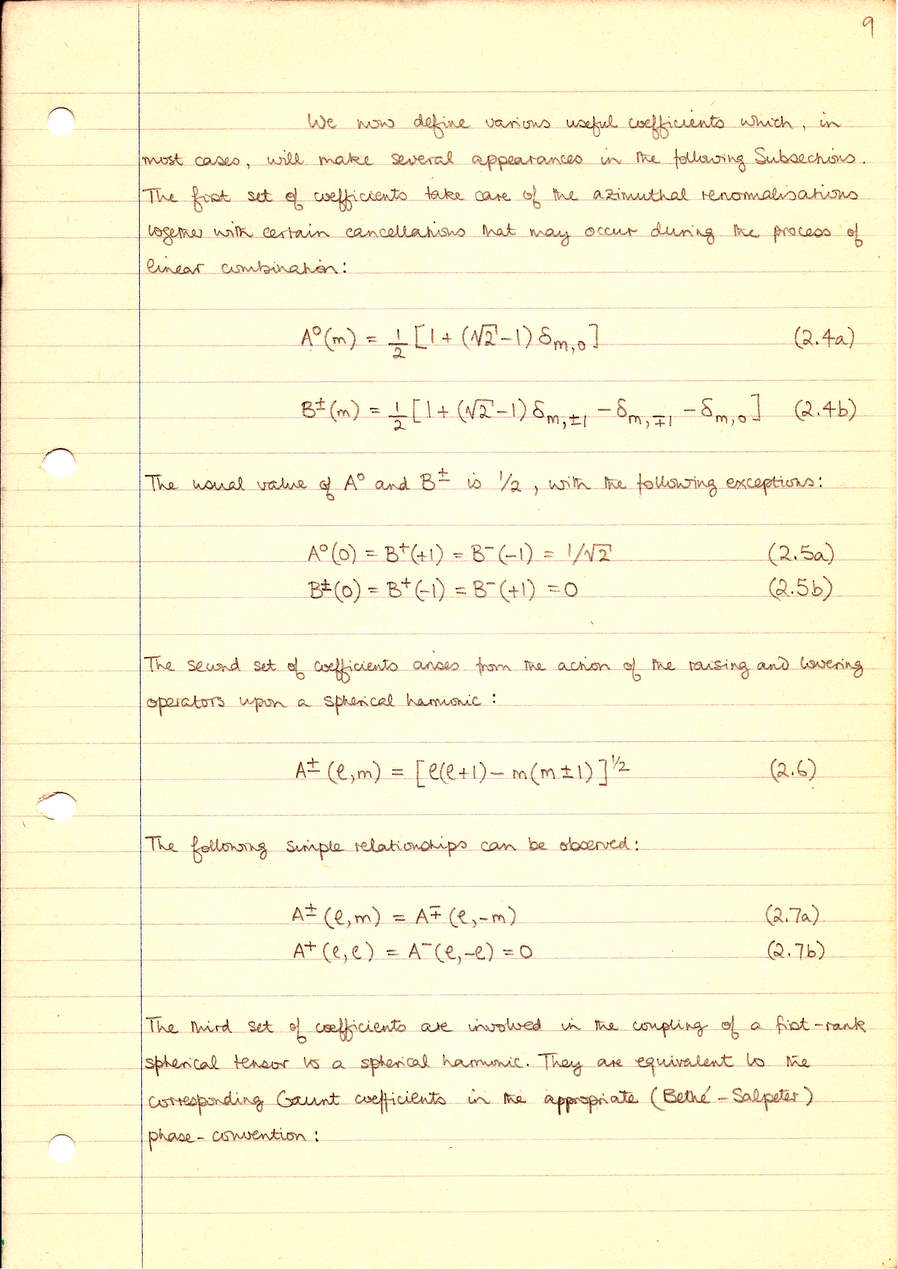 9
We now define various useful coefficients which, in
most cases, will make several appearances in the following Subsections.
The first set of coefficients take care of the azimuthal renormalisations
together with certain cancellations that may occur during the process of
linear combination:
A⁰(m) = 1/2 [1 + (√2 - 1) δ_{m,0}] (2.4a)
B±(m) = 1/2 [1 + (√2 - 1) δ_{m,±1} - δ_{m,∓1} - δ_{m,0}] (2.4b)
The usual value of A⁰ and B± is 1/2, with the following exceptions:
A⁰(0) = B⁺(+1) = B⁻(-1) = 1/√2 (2.5a)
B±(0) = B⁺(-1) = B⁻(+1) = 0 (2.5b)
The second set of coefficients arises from the action of the raising and lowering
operators upon a spherical harmonic:
A±(ℓ,m) = [ℓ(ℓ+1) - m(m±1)]^{1/2} (2.6)
The following simple relationships can be observed:
A±(ℓ,m) = A∓(ℓ,-m) (2.7a)
A⁺(ℓ,ℓ) = A⁻(ℓ,-ℓ) = 0 (2.7b)
The third set of coefficients are involved in the coupling of a first-rank
spherical tensor to a spherical harmonic. They are equivalent to the
corresponding Gaunt coefficients in the appropriate (Bethé-Salpeter)
phase-convention: